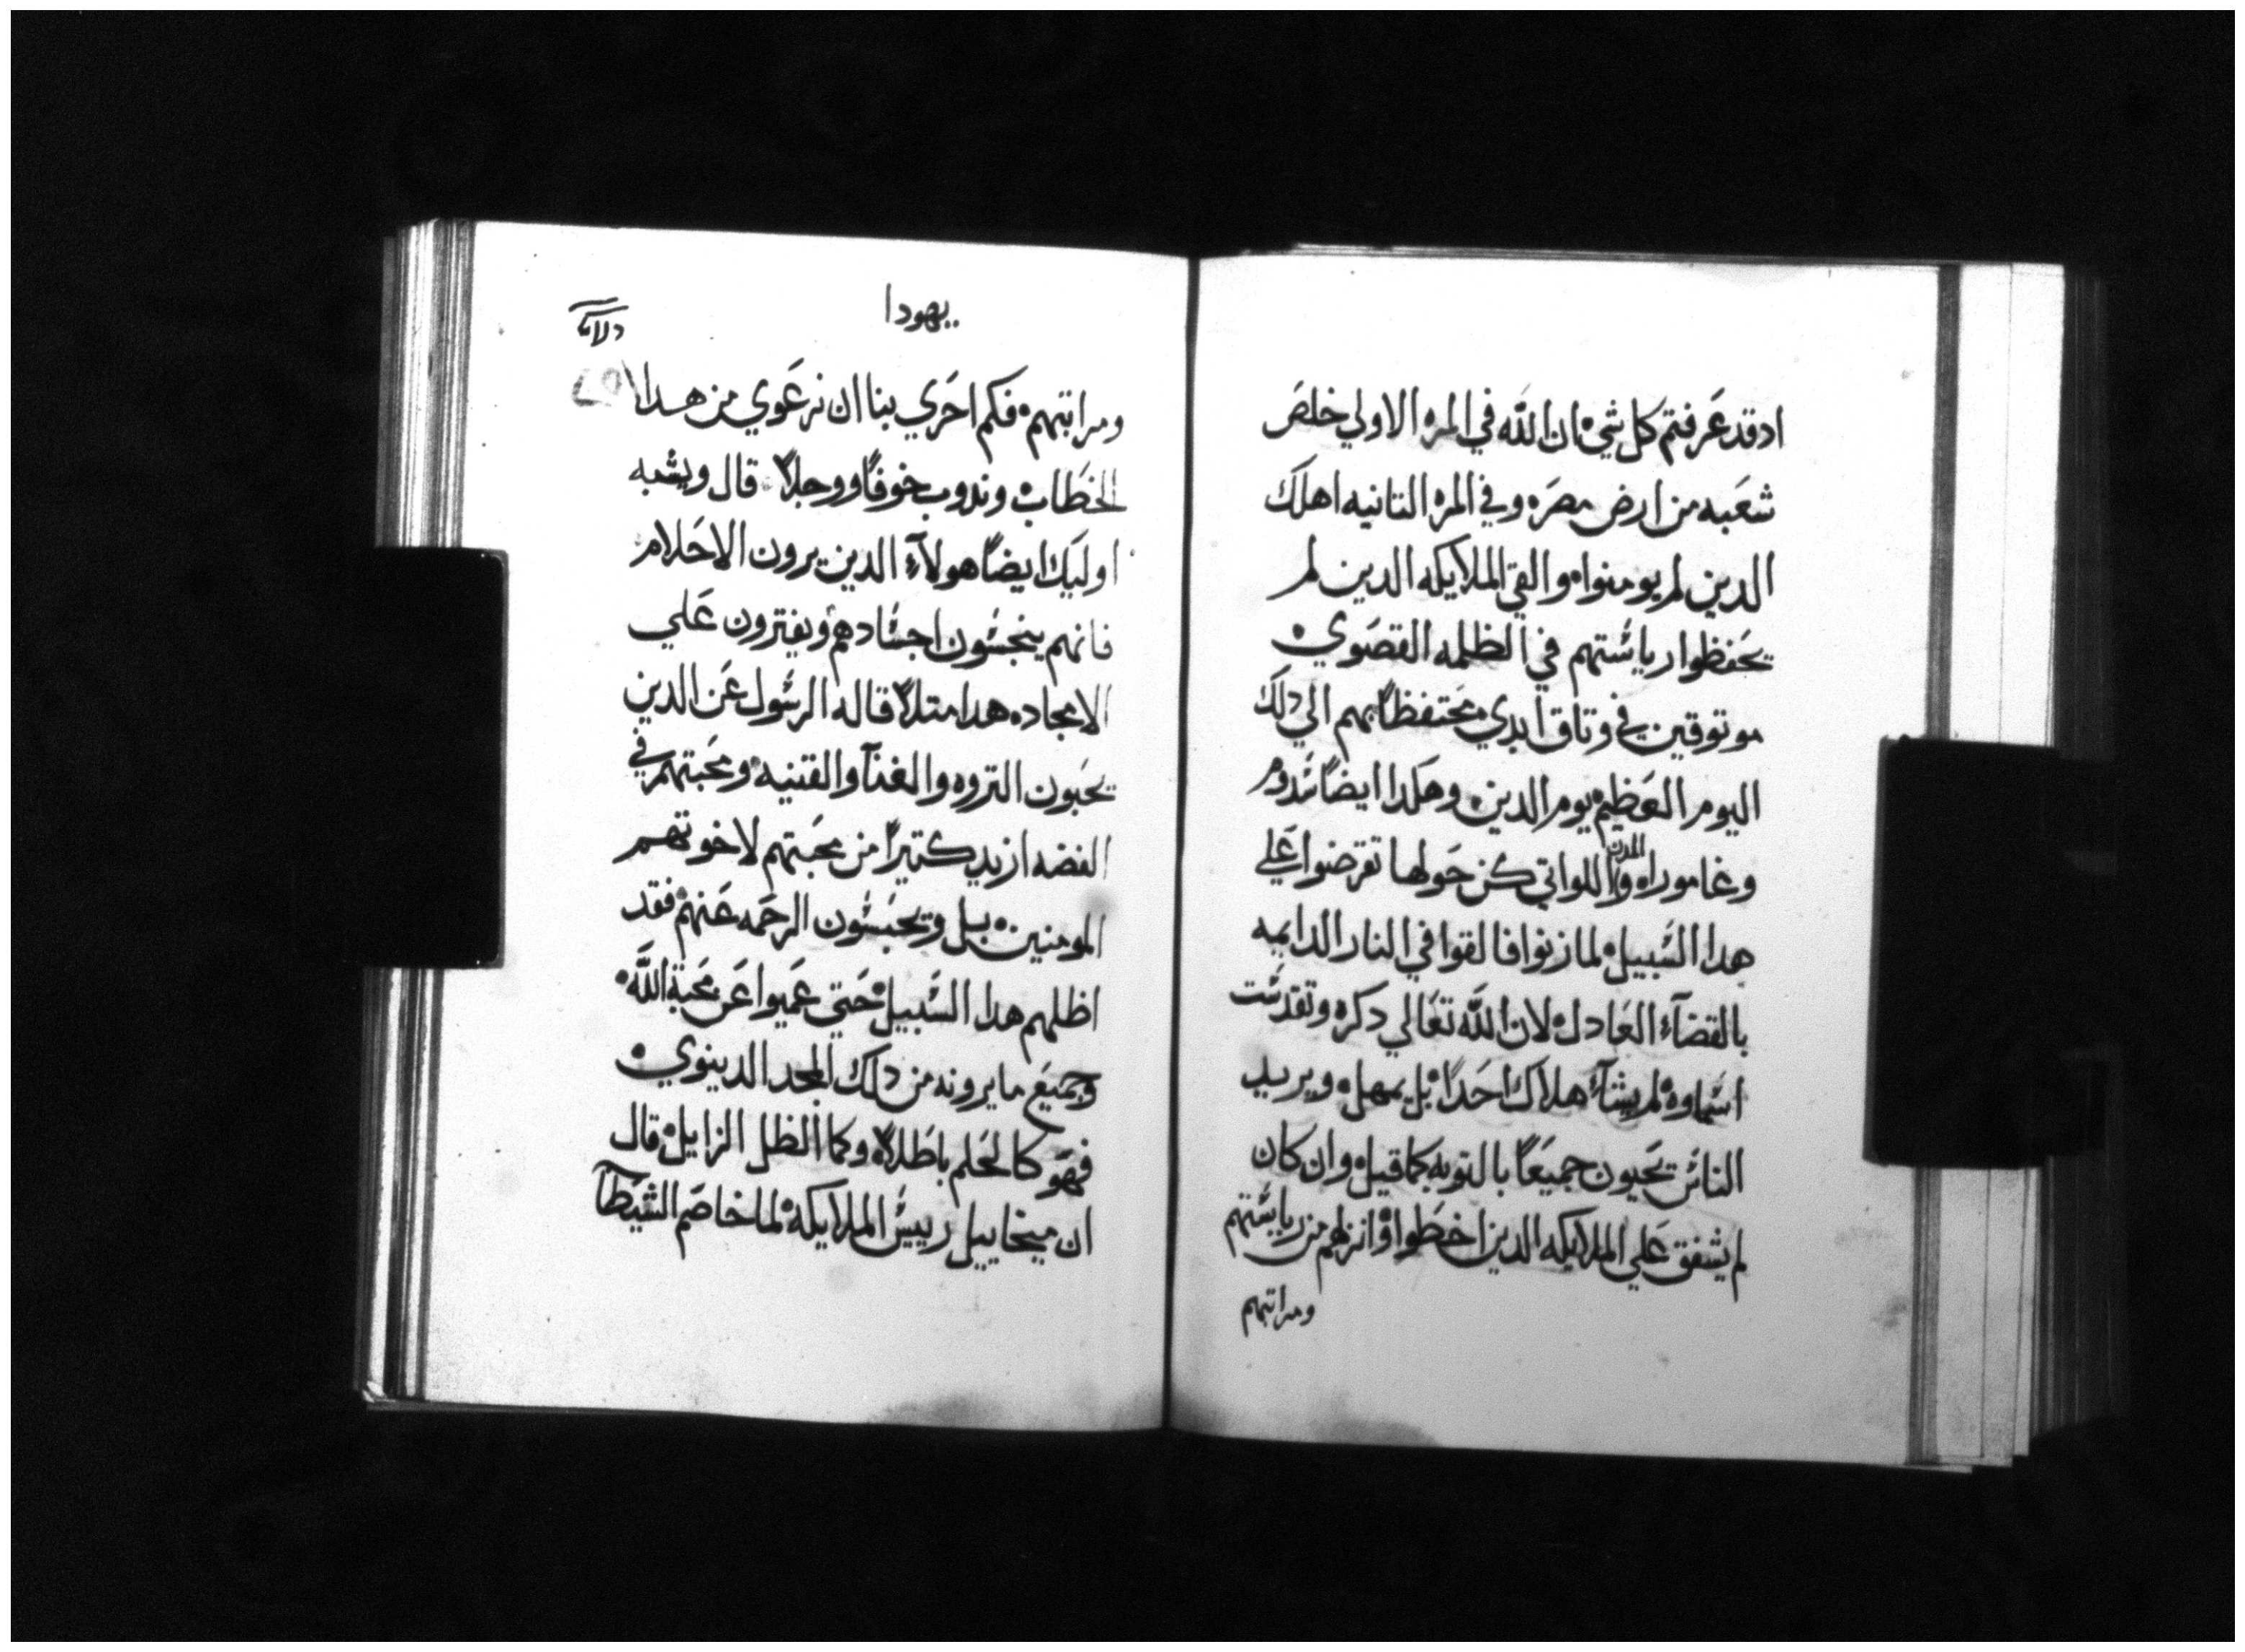 ادقد عَرفتم كل شي ان اللَّه في المره الاولي خلصَ
شعَبه من ارض مصَره وفي المره التانيه اهلك
الدين لم يومنواه والقي الملايكه الدين لم
يحَفظوا رياستهم في الظلمه القصَوي
موتوقين في وتاق ابدي محَتفظاً بهم الي دلك
اليوم العَظيم يوم الدين وهكدا ايضاً سَدوم
وغاموراه والمدن اللواتي كن حَولها تقرضوا عَلي
هدا السَبيل لما زنوا فالقوا في النار الدايمه
بالقضآء العَادل لان اللَّه تعَالي دكره وتقدسَت
اسَماوه لم يشآء هلاك احَداً بل يمهل ويريد
الناسَ يحَيون جميعَاً بالتوبه كما قيل وان كان
لم يشفق عَلي الملايكه الدين اخطَوا وانزلهم من رياستهم
ومراتبهم
يهودا
ومراتبهم فكم احَري بنا ان نرعَوي من هدا
الخطَاب وندوب خوفاً ووجلاً قال ويشبه
اوليك ايضاً هولآء الدين يرون الاحَلام
فانهم ينجسَون اجسَادهم ويفترون عَلي
الامجاد هدا متلاً قاله الرسَول عَن الدين
يحَبون التروه والغنآ والقتنيه ومحَبتهم في
الفضه ازيد كتيراً من محَبتهم لاخوتهم
المومنين بل ويحَبسَون الرحَمه عَنهم فقد
اظلهم هدا السَبيل حَتي عَميوا عَن محَبة اللَّه
وجميعَ ما يرونه من دلك المجد الدينوي
فهَو كالحَلم باطَلاً وكما الظل الزايل قال
ان ميخاييل رييس الملايكه لما خاصَم الشيطَآ